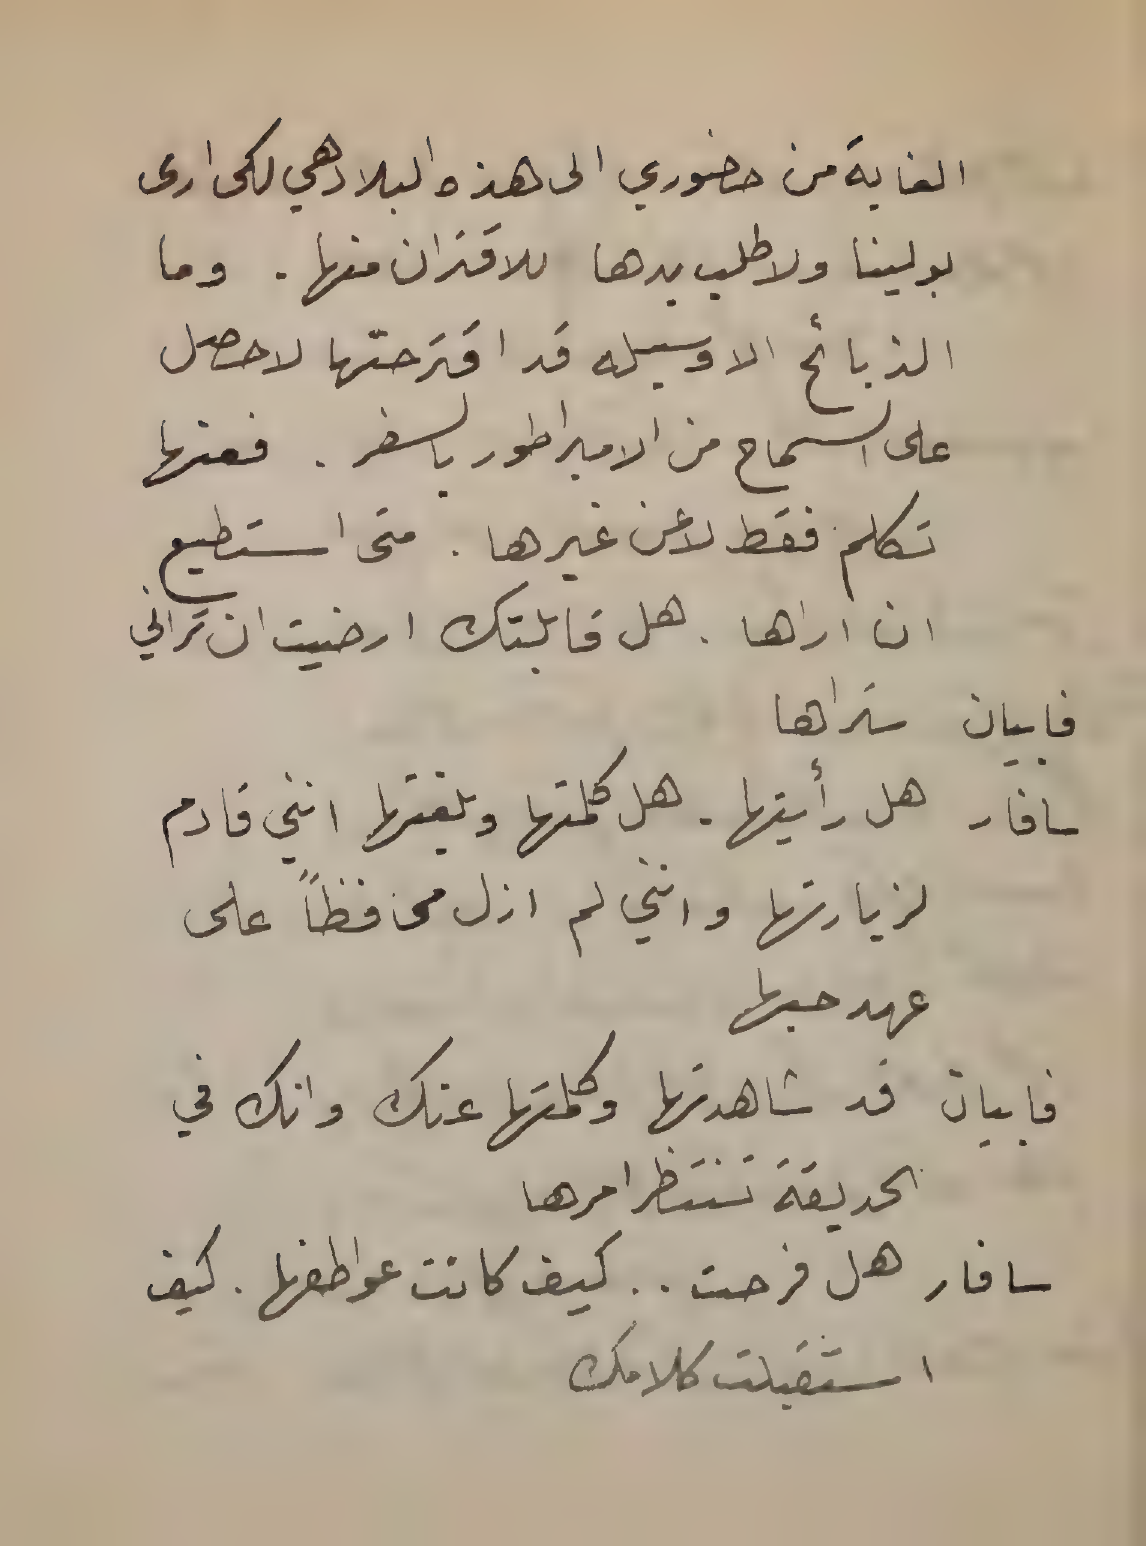 الغاية من حضوري الى هذه البلاد هي لكي ارى
بولينا ولاطلب يدها للاقتران منها . وما
الذبائح الا وسيله قد اقترحتها لاحصل
على السماح من الامبراطور بالسفر . فعنها
تكلم فقط لا عن غيرها . متى استطيع
ان اراها . هل قابلتك ارضيت ان تراني
فابيان ستراها
سافار هل رأيتها . هل كلمتها وبلغتها انني قادم
لزيارتها وانني لم ازل محافظاً على
عهد حبها
فابيان قد شاهدتها وكلمتها عنك وانك في
الحديقة تنتظر امرها
سافار هل فرحت . . كيف كانت عواطفها . كيف
استقبلت كلامك